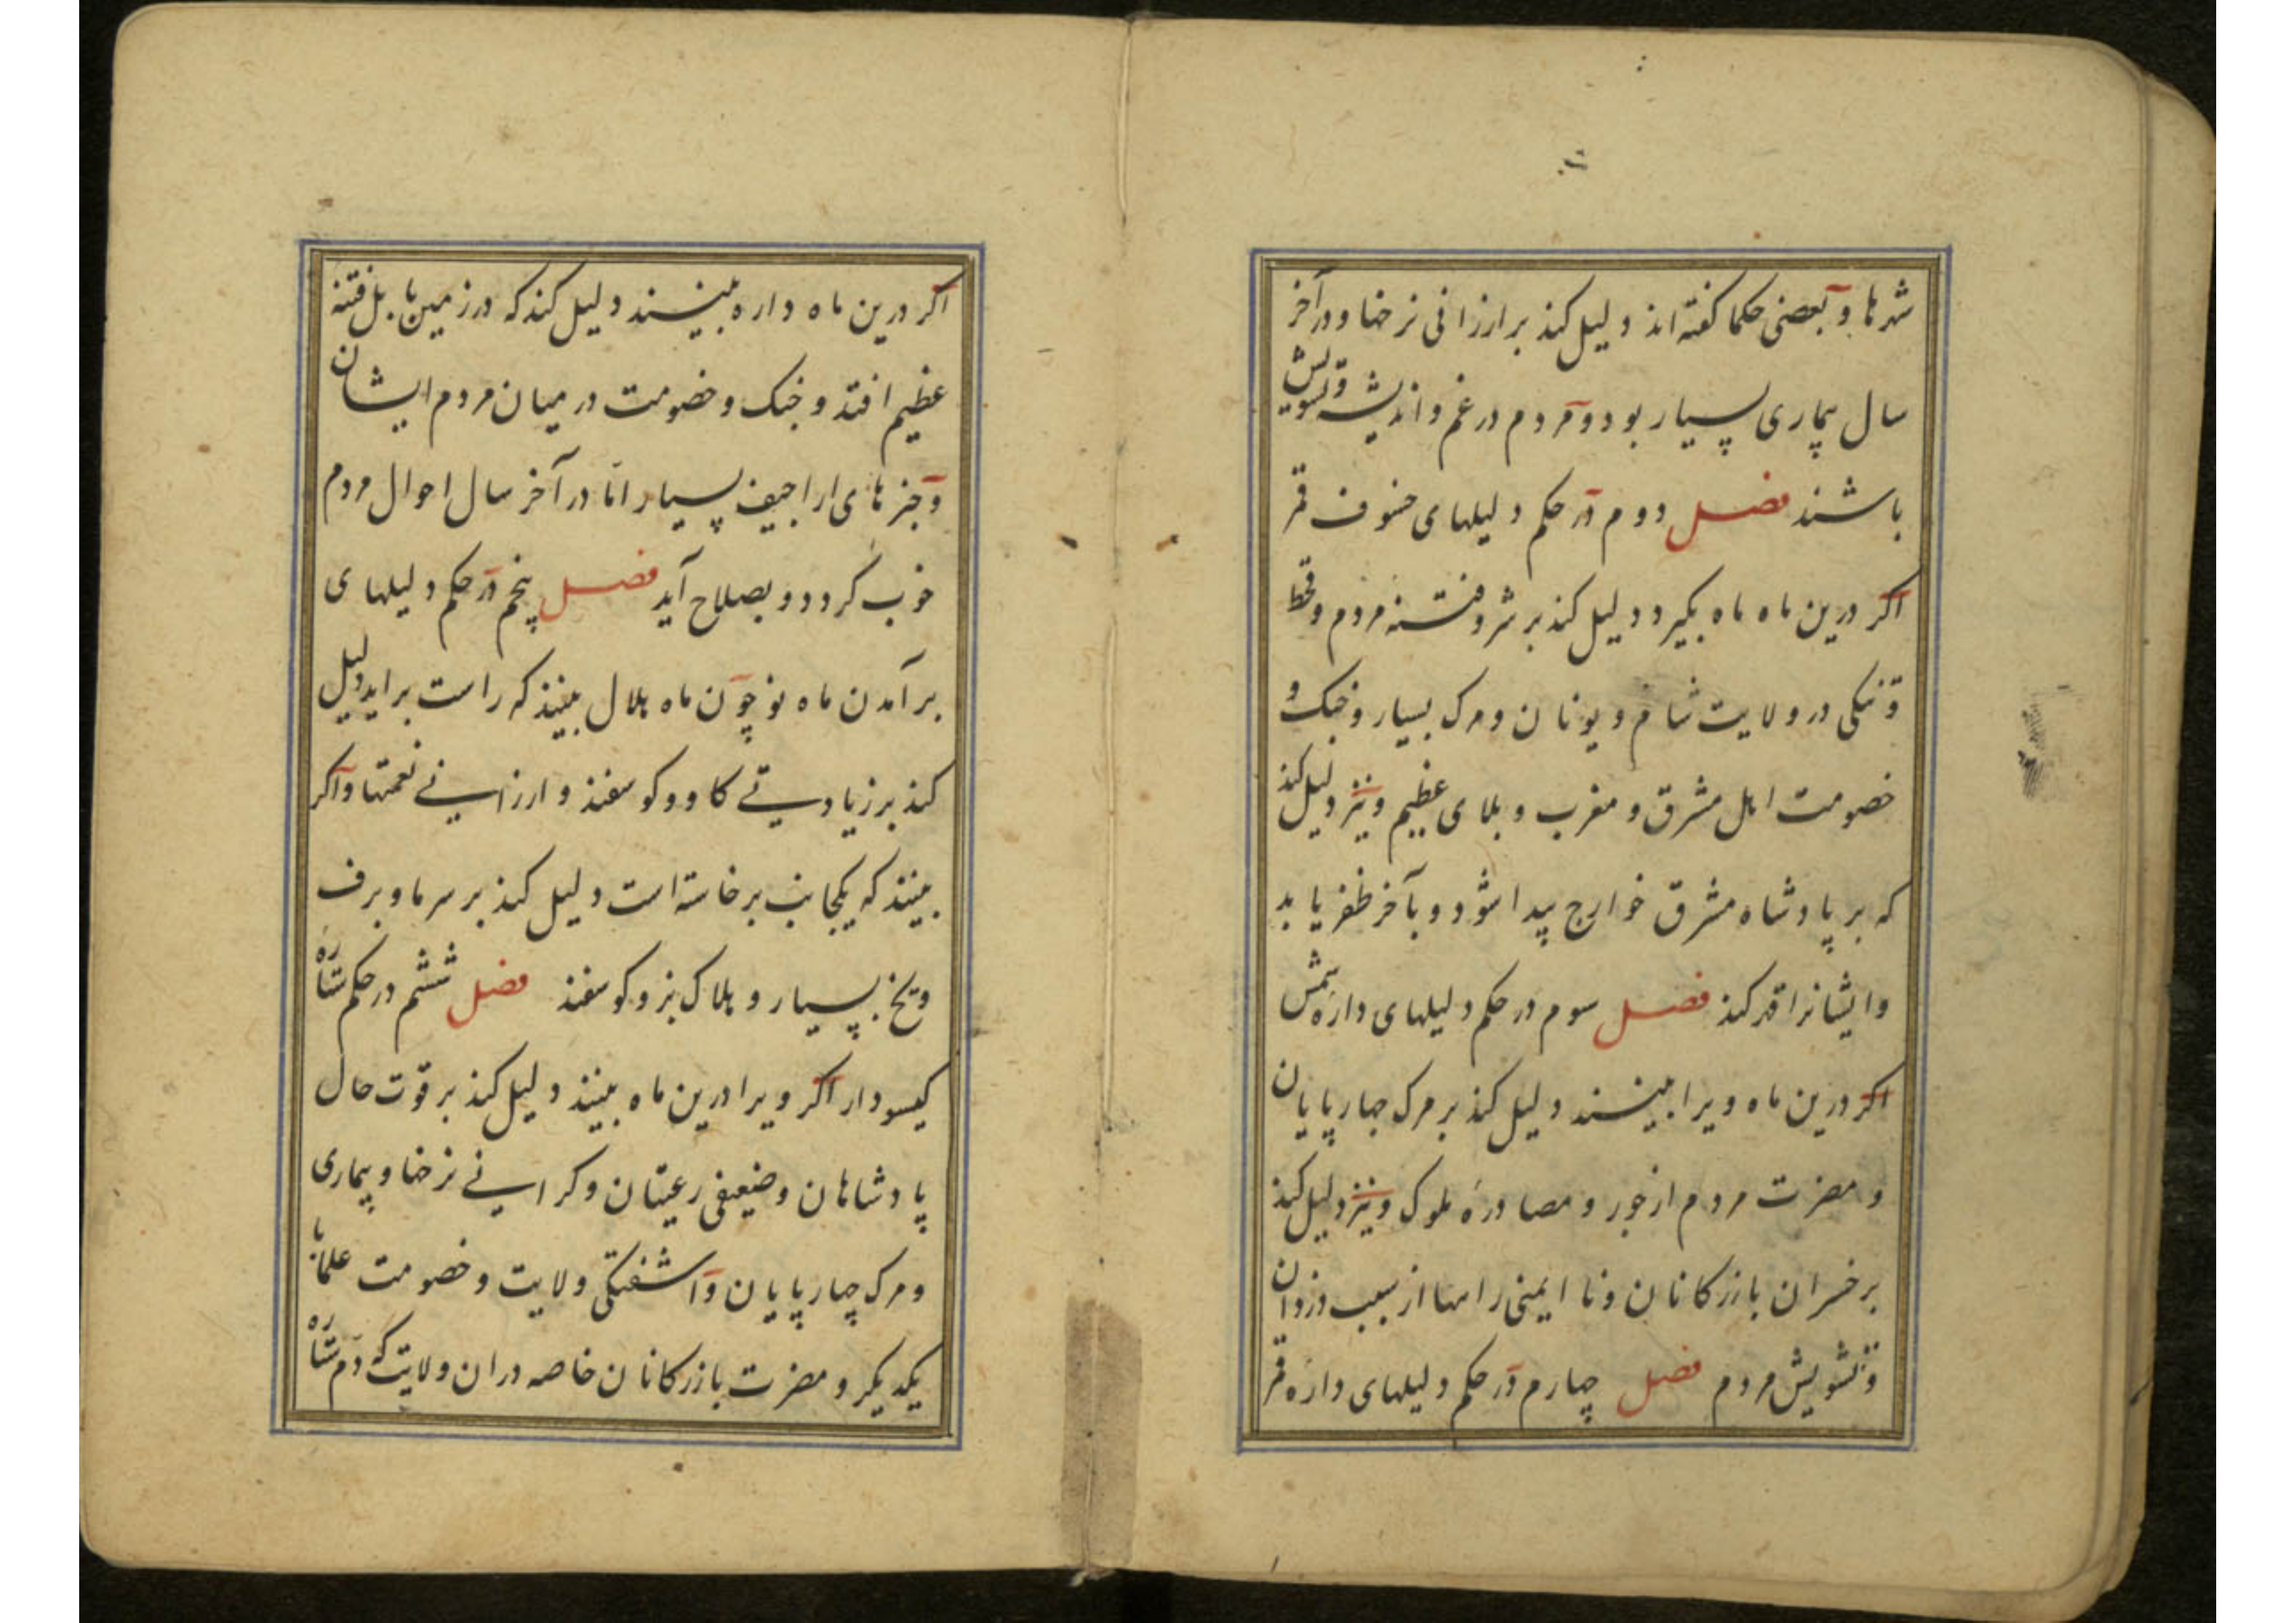 شهرها و بعضی حکما کفته اند دلیل کند بر ارزانی نرخها و در آخر
سال بیماری بسیار بود و مردم در غم و اندیشه و تشویش
باشند فصل دوم در حکم دلیلهای خسوف قمر
اکر درین ماه ماه بکیرد دلیل کند بر شر و فتنه مردم و قحط
و تنکی در ولایت شام و یونان و مرک بسیار و جنک و
خصومت اهل مشرق و مغرب و بلای عظیم و نیز دلیل کند
که بر پادشاه مشرق خوارج پیدا شود و بآخر ظفر یابد
و ایشانرا قهر کند فصل سوم در حکم دلیلهای داره شمس
اکر درین ماه ویرا ببینند دلیل کند بر مرک چهارپایان
و مضرت مردم از جور و مصادرهٔ ملوک و نیز دلیل کند
بر خسران بازرکانان و نا ایمنی راهها از سبب دزدان
و تشویش مردم فصل چهارم در حکم دلیلهای داره قمر
اکر درین ماه داره ببینند دلیل کند که در زمین بابل فتنه
عظیم افتد و جنک و خصومت در میان مردم ایشان
و خبرهای اراجیف بسیار امّا در آخر سال احوال مردم
خوب کردد و بصلاح آید فصل پنجم در حکم دلیلهای
برآمدن ماه نو چون ماه هلال ببینند که راست براید دلیل
کند بر زیادتی کاو و کوسفند و ارزانی نعمتها و اکر
ببینند که یکجانب برخاسته است دلیل کند بر سرما و برف
و یخ بسیار و هلاک بز و کوسفند فصل ششم در حکم ستاره
کیسودار اکر ویرا درین ماه ببینند دلیل کند بر قوت حال
پادشاهان و ضعیفی رعیتان و کرانی نرخها و بیماری
و مرک چهارپایان و آشفتکی ولایت و خصومت علما با
یکدیکر و مضرت بازرکانان خاصه در ان ولایت که دم ستاره